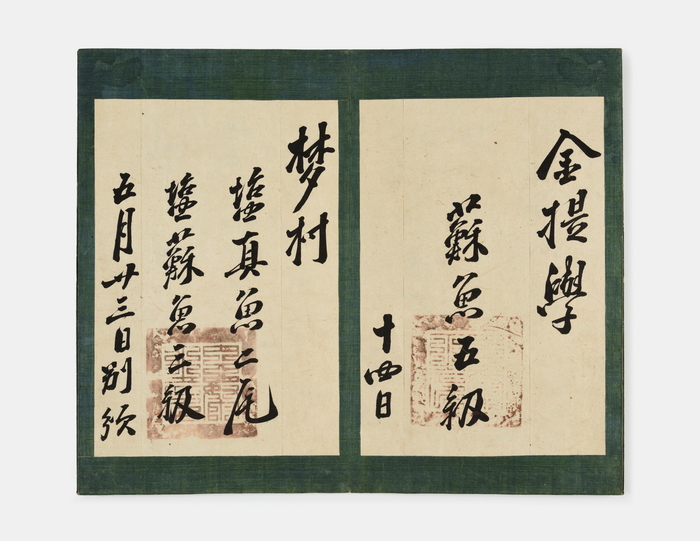 金提學
蘇魚五級
十四日
梦村
塩真魚二尾
塩蘇魚三級
五月廿三日別